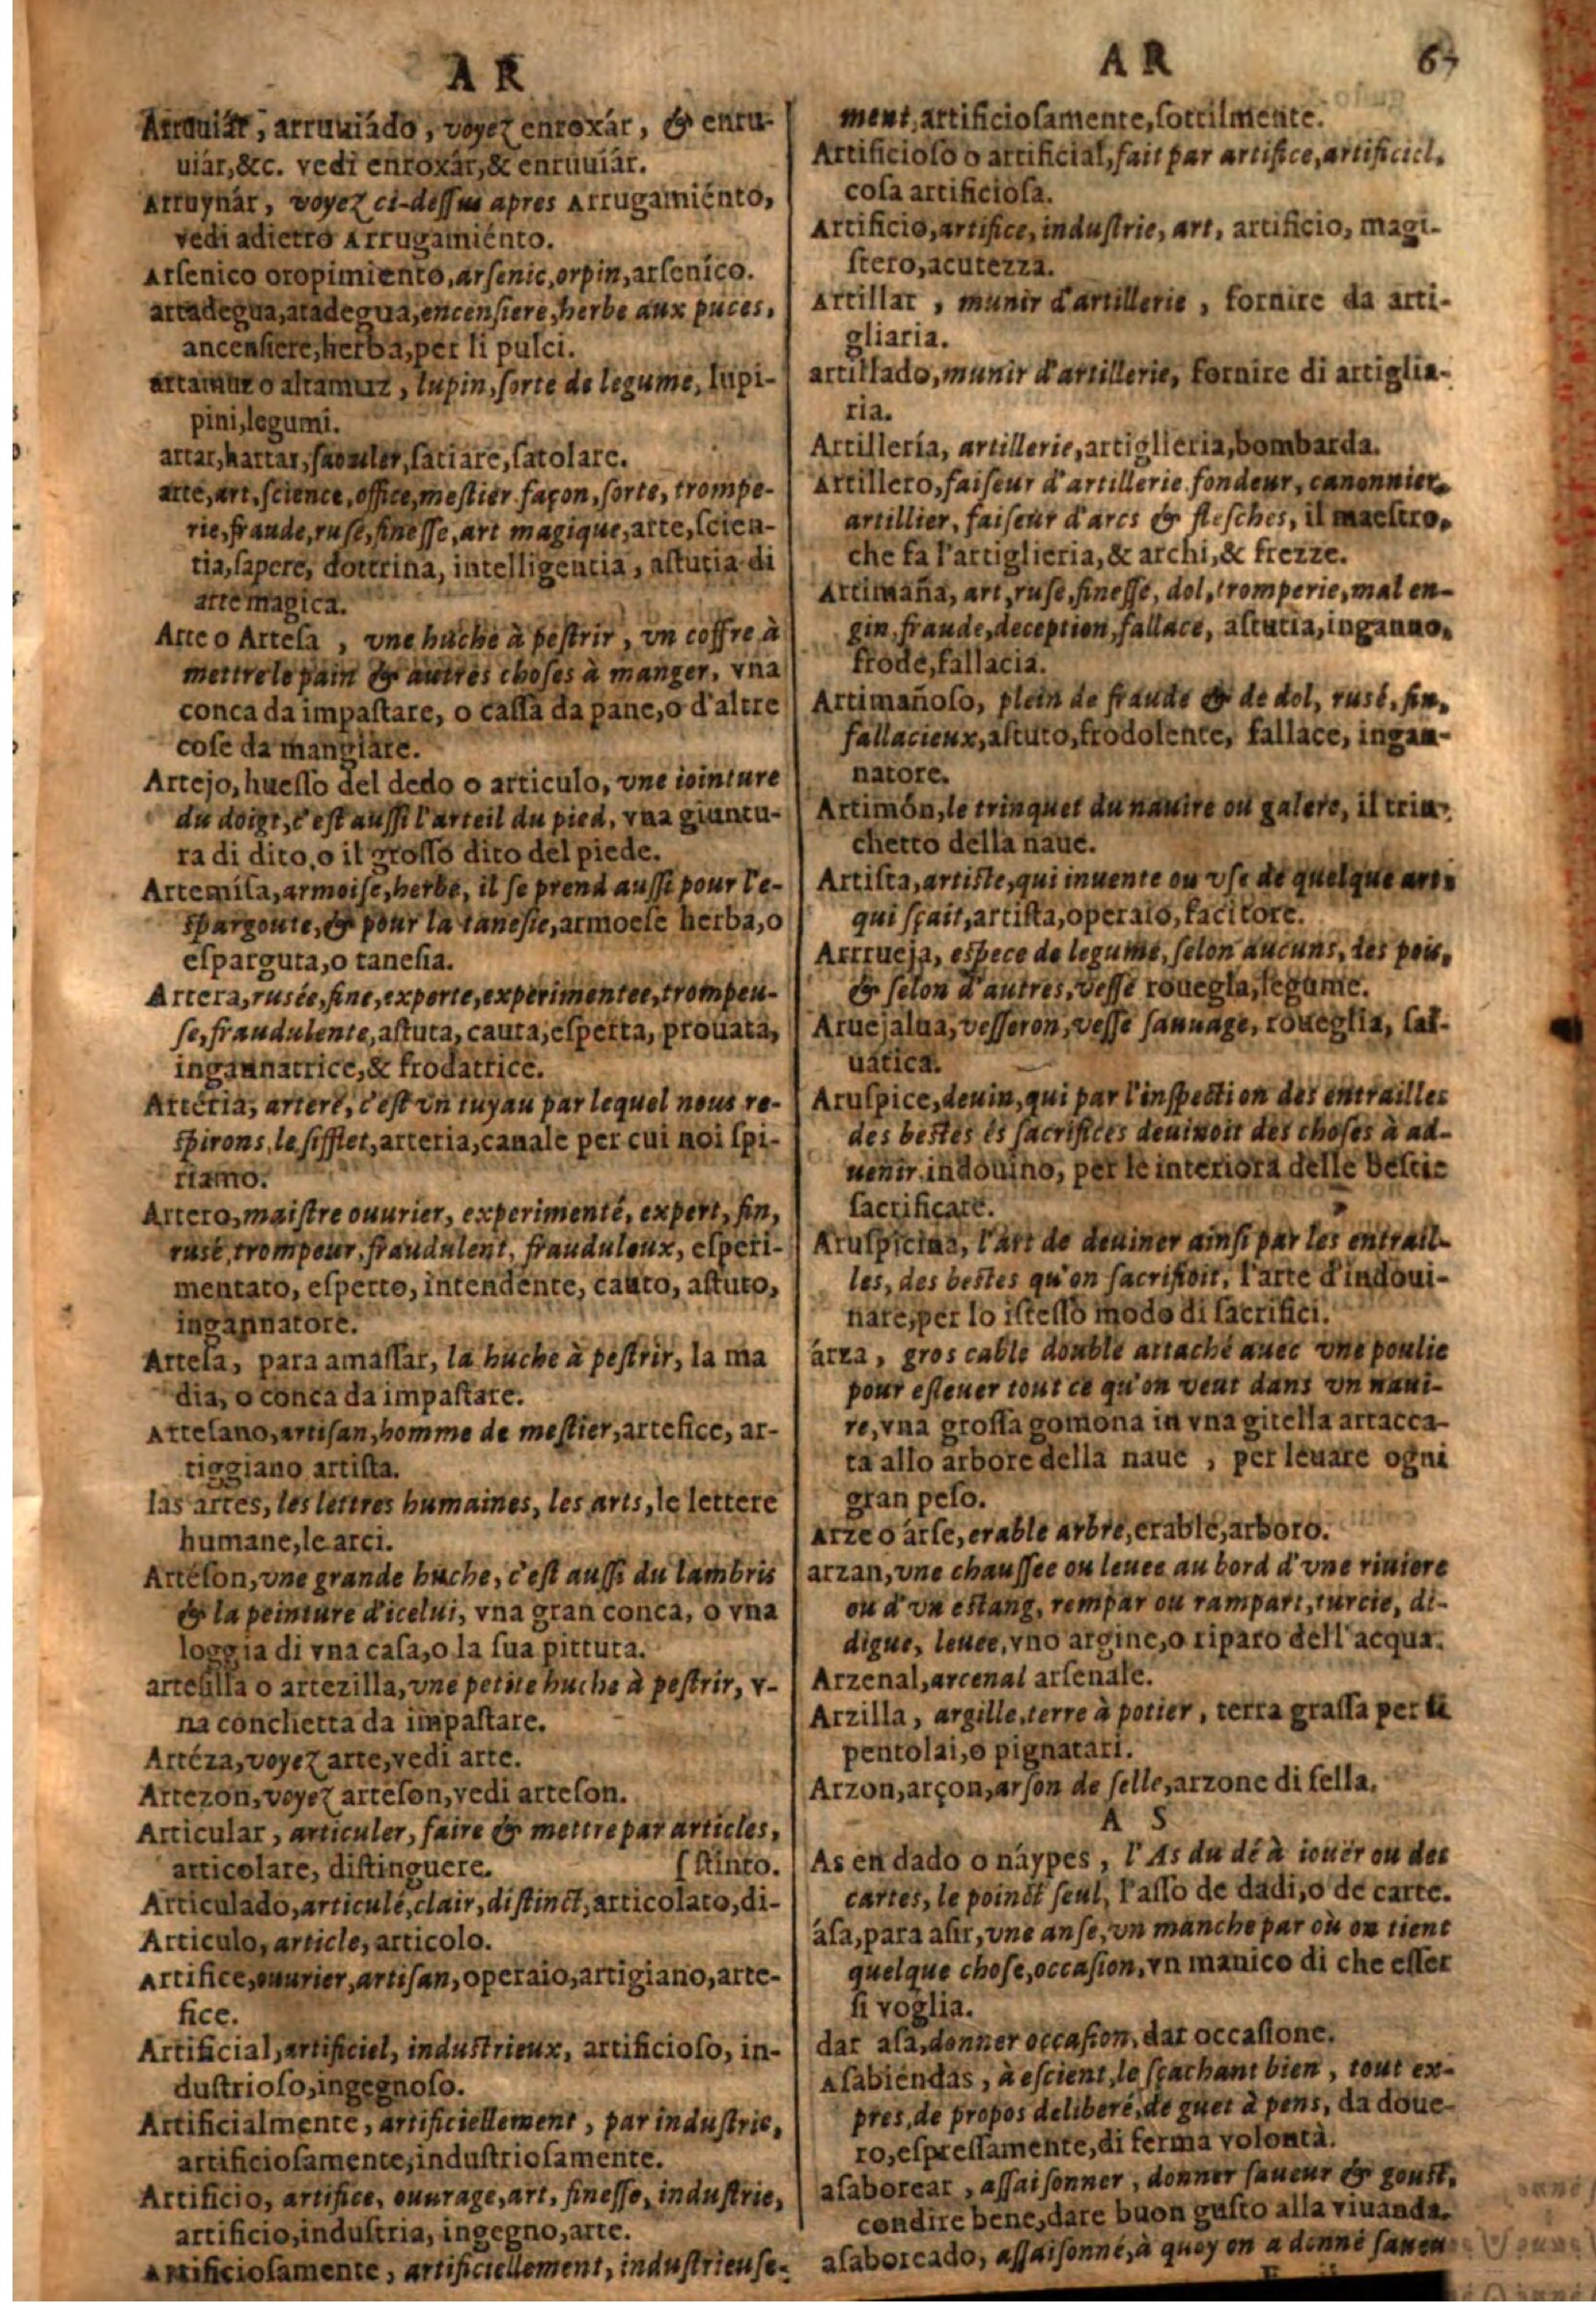 A R
Arruuiár, arruuiádo, voyez enroxár, & enru-
uiár,&c. vedi enroxár,& enruuiár.
Arruynár, voyez ci-dessus apres Arrugamiénto,
vedi adietro Arrugamiénto.
Arsenico oropimiento, arsenic, orpin, arsenico.
artadegua, atadegua, encensiere, herbe aux puces,
ancensiere, herba, per li pulci.
artamuz o altamuz, lupin, sorte de legume, lupi-
pini, legumi.
artar, hartar, saouler, satiare, satolare.
arte, art, science, office, mestier façon, sorte, trompe-
rie, fraude, ruse, finesse, art magique, arte, scien-
tia, sapere, dottrina, intelligentia, astutia di
arte magica.
Arte o Artesa, vne huche à pestrir, vn coffre à
mettre le pain & autres choses à manger, vna
conca da impastare, o cassa da pane, o d'altre
cose da mangiare.
Artejo, huesso del dedo o articulo, vne iointure
du doigt, c'est aussi l'arteil du pied, vna giuntu-
ra di dito, o il grosso dito del piede.
Artemisa, armoise, herbe, il se prend aussi pour l'e-
spargoute, & pour la tanesie, armoese herba, o
esparguta, o tanesia.
Artera, rusée, fine, experte, experimentee, trompeu-
se, fraudulente, astuta, cauta, esperta, prouata,
ingannatrice, & frodatrice.
Artéria, artere, c'est vn tuyau par lequel nous re-
spirons, le sifflet, arteria, canale per cui noi spi-
riamo.
Artero, maistre ouurier, experimenté, expert, fin,
rusé, trompeur, fraudulent, frauduleux, esperi-
mentato, esperto, intendente, cauto, astuto,
ingannatore.
Artesa, para amassar, la huche à pestrir, la ma
dia, o conca da impastare.
Artesano, artisan, homme de mestier, artefice, ar-
tiggiano artista.
las artes, les lettres humaines, les arts, le lettere
humane, le arci.
Artéson, vne grande huche, c'est aussi du lambris
& la peinture d'icelui, vna gran conca, o vna
loggia di vna casa, o la sua pittura.
artesilla o artezilla, vne petite huche à pestrir, v-
na conchetta da impastare.
Artéza, voyez arte, vedi arte.
Artezon, voyez arteson, vedi arteson.
Articular, articuler, faire & mettre par articles,
articolare, distinguere. [stinto.
Articulado, articulé, clair, distinct, articolato, di-
Articulo, article, articolo.
Artifice, ouurier, artisan, operaio, artigiano, arte-
fice.
Artificial, artificiel, industrieux, artificioso, in-
dustrioso, ingegnoso.
Artificialmente, artificiellement, par industrie,
artificiosamente, industriosamente.
Artificio, artifice, ouurage, art, finesse, industrie,
artificio, industria, ingegno, arte.
Artificiosamente, artificiellement, industrieuse-
A R 67
ment, artificiosamente, sottilmente.
Artificioso o artificial, fait par artifice, artificiel,
cosa artificiosa.
Artificio, artifice, industrie, art, artificio, magi-
stero, acutezza.
Artillar, munir d'artillerie, fornire da arti-
gliaria.
artillado, munir d'artillerie, fornire di artiglia-
ria.
Artillería, artillerie, artiglieria, bombarda.
Artillero, faiseur d'artillerie fondeur, canonnier,
artillier, faiseur d'arcs & flesches, il maestro,
che fa l'artiglieria, & archi, & frezze.
Artimaña, art, ruse, finesse, dol, tromperie, mal en-
gin, fraude, deception, fallace, astutia, inganno,
frode, fallacia.
Artimañoso, plein de fraude & de dol, rusé, fin,
fallacieux, astuto, frodolente, fallace, ingan-
natore.
Artimón, le trinquet du nauire ou galere, il trin-
chetto della naue.
Artista, artiste, qui inuente ou vse de quelque art,
qui sçait, artista, operaio, facitore.
Arrrueja, espece de legume, selon aucuns, des pois,
& selon d'autres, vesse rouegla, legume.
Aruejalua, vesseron, vesse sauuage, roueglia, sal-
uatica.
Aruspice, deuin, qui par l'inspection des entrailles
des bestes és sacrifices deuinoit des choses à ad-
uenir, indouino, per le interiora delle bestie
sacrificate.
Aruspicina, l'art de deuiner ainsi par les entrail-
les, des bestes qu'on sacrifioit, l'arte d'indoui-
nare, per lo istesso modo di sacrifici.
árza, gros cable double attaché auec vne poulie
pour esleuer tout ce qu'on veut dans vn naui-
re, vna grossa gomona in vna gitella attacca-
ta allo arbore della naue, per leuare ogni
gran peso.
Arze o árse, erable arbre, erable, arboro.
arzan, vne chaussee ou leuee au bord d'vne riuiere
ou d'vn estang, rempar ou rampart, turcie, di-
digue, leuee, vno argine, o riparo dell'acqua.
Arzenal, arcenal arsenale.
Arzilla, argille, terre à potier, terra grassa per li
pentolai, o pignatari.
Arzon, arçon, arson de selle, arzone di sella.
A S
As en dado o náypes, l'As du dé à iouër ou des
cartes, le poinct seul, l'asso de dadi, o de carte.
ása, para asir, vne anse, vn manche par où on tient
quelque chose, occasion, vn manico di che esser
si voglia.
dar asa, donner occasion, dar occasione.
Asabiéndas, à escient, le sçachant bien, tout ex-
pres, de propos deliberé, de guet à pens, da doue-
ro, espressamente, di ferma volontà.
asaborear, assaisonner, donner saueur & goust,
condire bene, dare buon gusto alla viuanda.
asaboreado, assaisonné, à quoy on a donné saueu